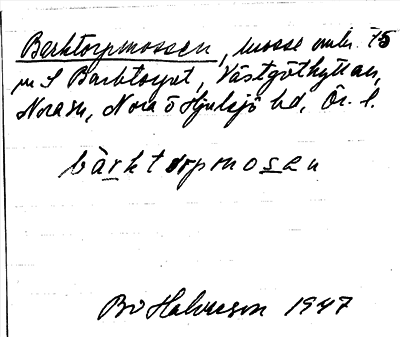 Barktorpmossen, mosse omkr. 75
m S Barktorpet, Västgöthyttan,
Nora sn, Nora o Hjulsjö hd, Ör. l.
bàrktorpmosen
Bo Halvarson 1947